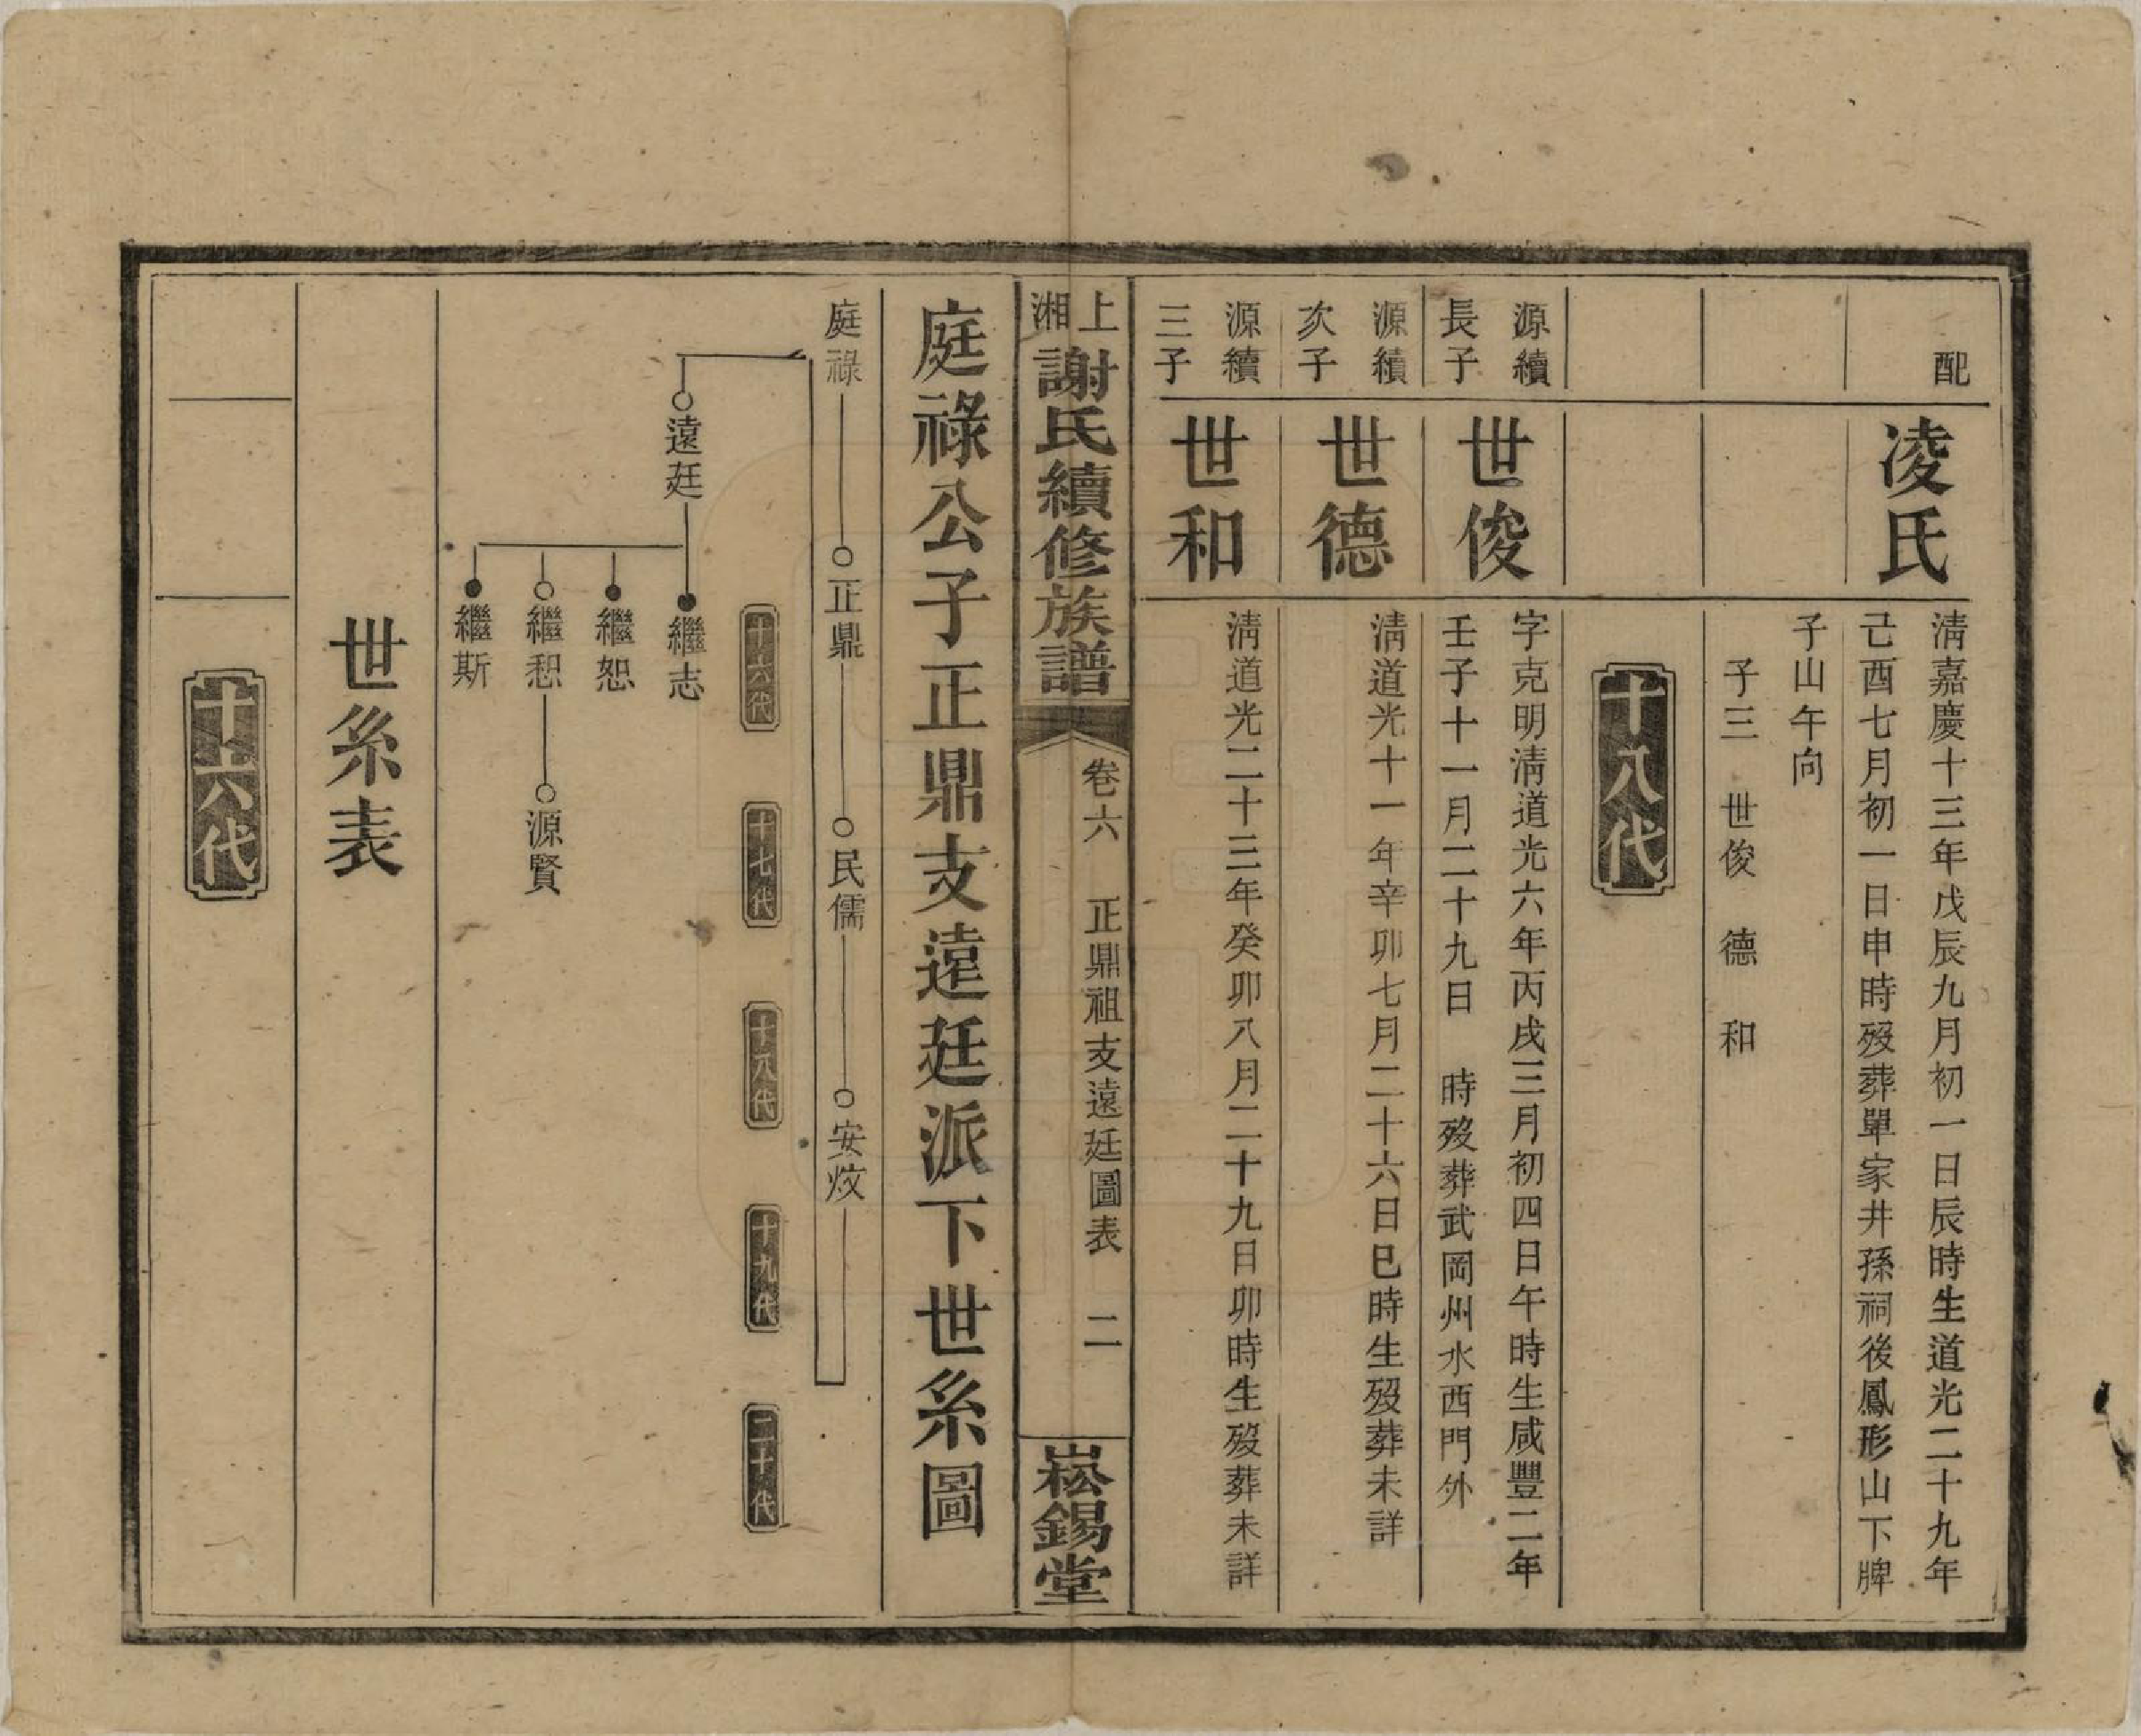 配
凌氏
清嘉慶十三年戊辰九月初一日辰時生道光二十九年
己酉七月初一日申時歿葬單家井孫祠後鳳形山下牌
子山午向
子三　世俊　德　和
十八代
源續
長子
世俊
字克明清道光六年丙戌三月初四日午時生咸豐二年
壬子十一月二十九日　時歿葬武岡州水西門外
源續
次子
世德
清道光十一年辛卯七月二十六日巳時生歿葬未詳
源續
三子
世和
清道光二十三年癸卯八月二十九日卯時生歿葬未詳
上湘
謝氏續修族譜
卷六　正鼎祖支遠廷圖表　二
崧錫堂
庭祿公子正鼎支遠廷派下世系圖
庭祿　正鼎　民儒　安炆
十六代　十七代　十八代　十九代　二十代
遠廷
繼志
繼恕
繼恕　源賢
繼斯
世系表
十六代